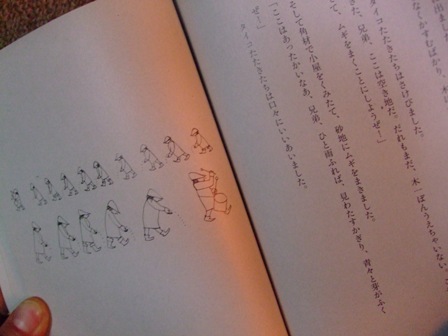 なくかすむばかり、木一
タイコたたきたちはさけびました。
た、兄弟、ここは空き地だ。だれもまだ、木一ぽんうえちゃいないこ
て、ムギをまくことにしようぜ！」
そして角材で小屋をくみたて、砂地にムギをまきました。
「ここはあったかいなあ、兄弟、ひと雨ふれば、見わたすかぎり、青々と芽がふく
ぜ！」
タイコたたきたちは口々にいいあいました。